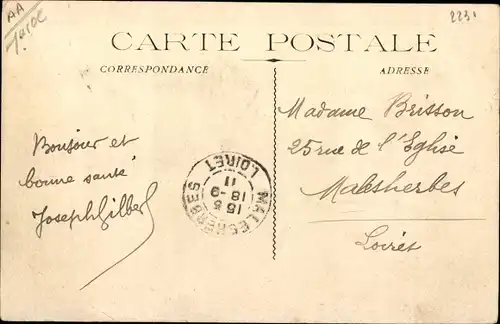 AA
2231
CARTE POSTALE
CORRESPONDANCE
ADRESSE
Bonjour et
bonne santé
Joseph Gilbert
Madame Brisson
25 rue de l'Eglise
Malesherbes
Loiret
MALESHERBES
15-5
18-9
11
LOIRET